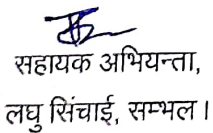 सहायक अभियन्ता,
लघु सिंचाई, सम्भल।